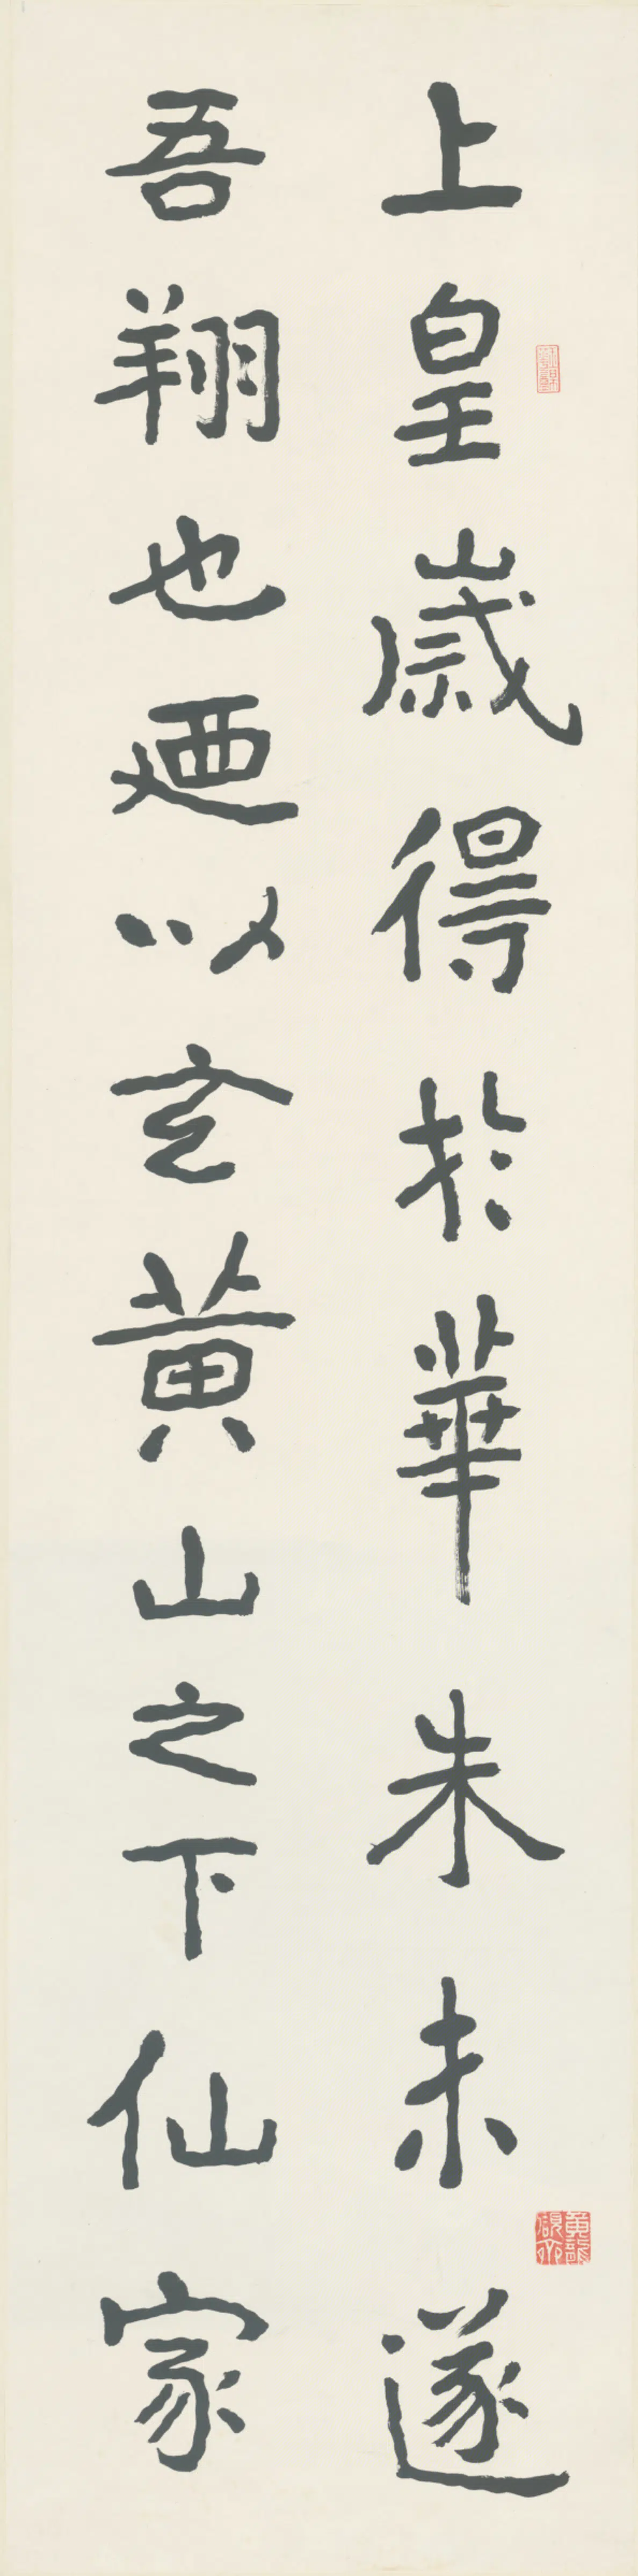 上皇歲得於華朱未遂
吾翔也迺以玄黃山之下仙家